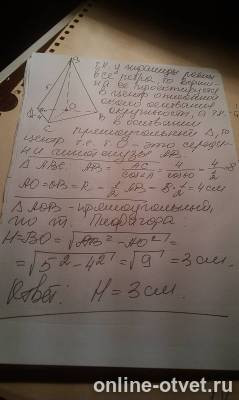 S
5
O
A
B
C
т.к. у пирамиды равны
все ребра, то верши-
на ее проектируется
в центр описанной
около основания
окружности, а т.к.
в основании
прямоугольный Δ, то
центр т.е. т. О - это середи-
на гипотенузы AB.
Δ ABC: AB = AC/cos A = 4/cos 60 = 4·2=8
AO=OB=R=1/2 AB=8·1/2=4см
Δ AOB-прямоугольный,
по т. Пифагора
H=BO=√AB²-AO²=
=√5²-4²=√9=3см.
Ответ: H=3см.
online-otvet.ru